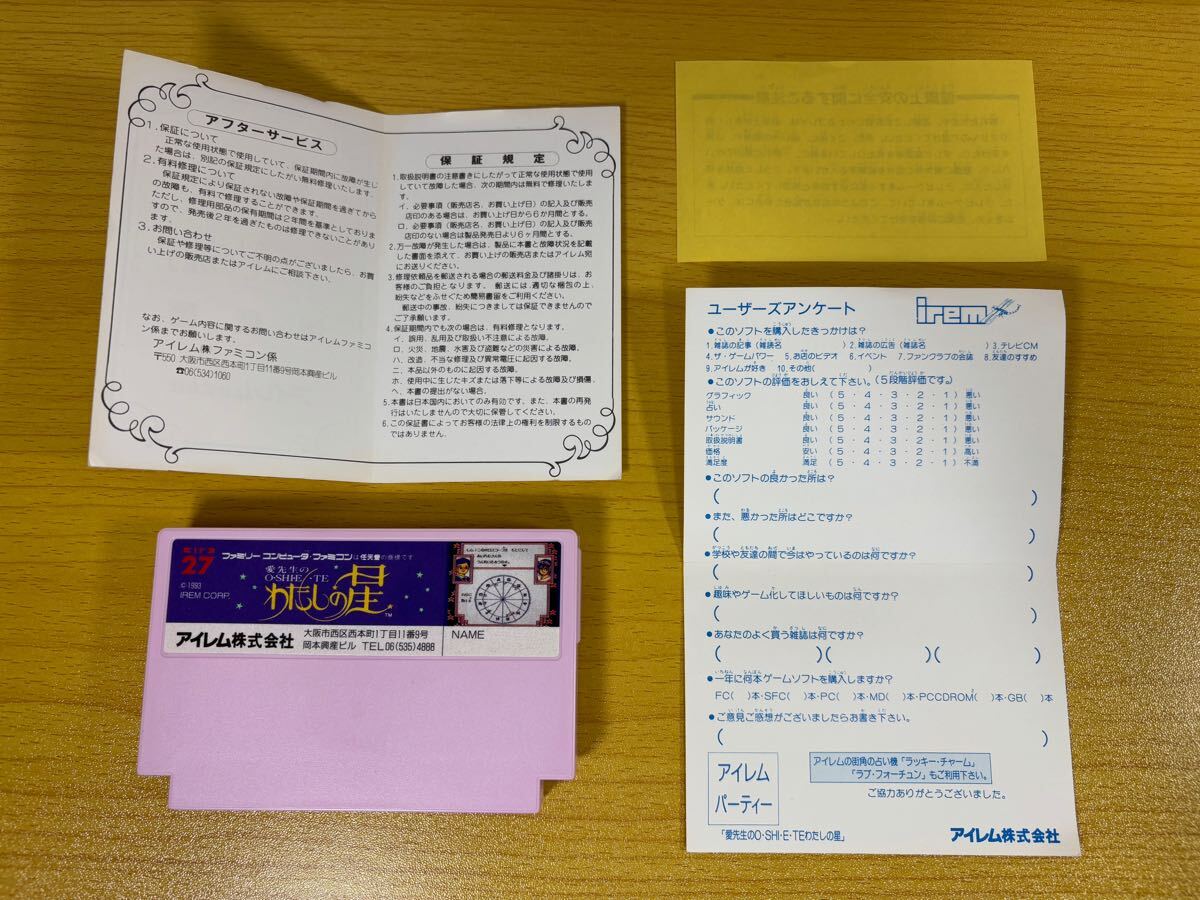 アフターサービス
1.保証について
正常な使用状態で使用していて、保証期間内に故障が生じ
た場合は、別記の保証規定にしたがい無料修理いたします。
2.有料修理について
保証規定により保証されない故障や保証期間を過ぎてから
の故障も、有料で修理することができます。
ただし、修理用部品の保有期間は2年間を基準としておりま
すので、発売後2年を過ぎたものは修理できないことがあり
ます。
3.お問い合わせ
保証や修理等についてご不明の点がございましたら、お買
い上げの販売店またはアイレムにご相談下さい。
なお、ゲーム内容に関するお問い合わせはアイレムファミコ
ン係までお願します。
アイレム㈱ファミコン係
〒550 大阪市西区西本町1丁目11番9号岡本興産ビル
☎06(534)1060
保証規定
1.取扱説明書の注意書きにしたがって正常な使用状態で使用
していて故障した場合、次の期間内は無料で修理いたしま
す。
イ.必要事項(販売店名、お買い上げ日)の記入及び販売
店印のある場合は、お買い上げ日から6か月間とする。
ロ.必要事項(販売店名、お買い上げ日)の記入及び販売
店印のない場合は製品発売日より6ヶ月間とする。
2.万一故障が発生した場合は、製品に本書と故障状況を記載
した書面を添えて、お買い上げの販売店またはアイレム宛
にお送りください。
3.修理依頼品を郵送される場合の郵送料金及び諸掛りは、お
客様のご負担となります。 郵送には、適切な梱包の上、
紛失などをふせぐため簡易書留をご利用ください。
郵送中の事故、紛失につきましては保証できませんので
ご了承願います。
4.保証期間内でも次の場合は、有料修理となります。
イ、誤用、乱用及び取扱い不注意による故障。
ロ、火災、地震、水害及び盗難などの災害による故障。
ハ、改造、不当な修理及び異常電圧に起因する故障。
ニ、本品以外のものに起因する故障。
ホ、使用中に生じたキズまたは落下等による故障及び損傷。
ヘ、本書の提出がない場合。
5.本書は日本国内においてのみ有効です。また、本書の再発
行はいたしませんので大切に保管してください。
6.この保証書によってお客様の法律上の権利を制限するもの
ではありません。
27
ファミリーコンピュータ・ファミコンは任天堂の商標です
©1993
IREM CORP.
愛先生の
O・SHI・E・TE
わたしの星
TM
アイレム株式会社
大阪市西区西本町1丁目11番9号
岡本興産ビル TEL06(535)4888
NAME
ユーザーズアンケート
irem
●このソフトを購入したきっかけは?
1.雑誌の記事(雑誌名 ) 2.雑誌の広告(雑誌名 ) 3.テレビCM
4.ザ・ゲームパワー 5.お店のビデオ 6.イベント 7.ファンクラブの会誌 8.友達のすすめ
9.アイレムが好き 10.その他( )
●このソフトの評価をおしえて下さい。(5段階評価です。)
グラフィック 良い(5・4・3・2・1)悪い
占い 良い(5・4・3・2・1)悪い
サウンド 良い(5・4・3・2・1)悪い
パッケージ 良い(5・4・3・2・1)悪い
取扱説明書 良い(5・4・3・2・1)悪い
価格 安い(5・4・3・2・1)高い
満足度 満足(5・4・3・2・1)不満
●このソフトの良かった所は?
( )
●また、悪かった所はどこですか?
( )
●学校や友達の間で今はやっているのは何ですか?
( )
●趣味やゲーム化してほしいものは何ですか?
( )
●あなたのよく買う雑誌は何ですか?
( )( )( )
●一年に何本ゲームソフトを購入しますか?
FC( )本・SFC( )本・PC( )本・MD( )本・PCCDROM( )本・GB( )本
●ご意見ご感想がございましたらお書き下さい。
( )
アイレム
パーティー
アイレムの街角の占い機「ラッキー・チャーム」
「ラブ・フォーチュン」もご利用下さい。
ご協力ありがとうございました。
「愛先生のO・SHI・E・TEわたしの星」
アイレム株式会社